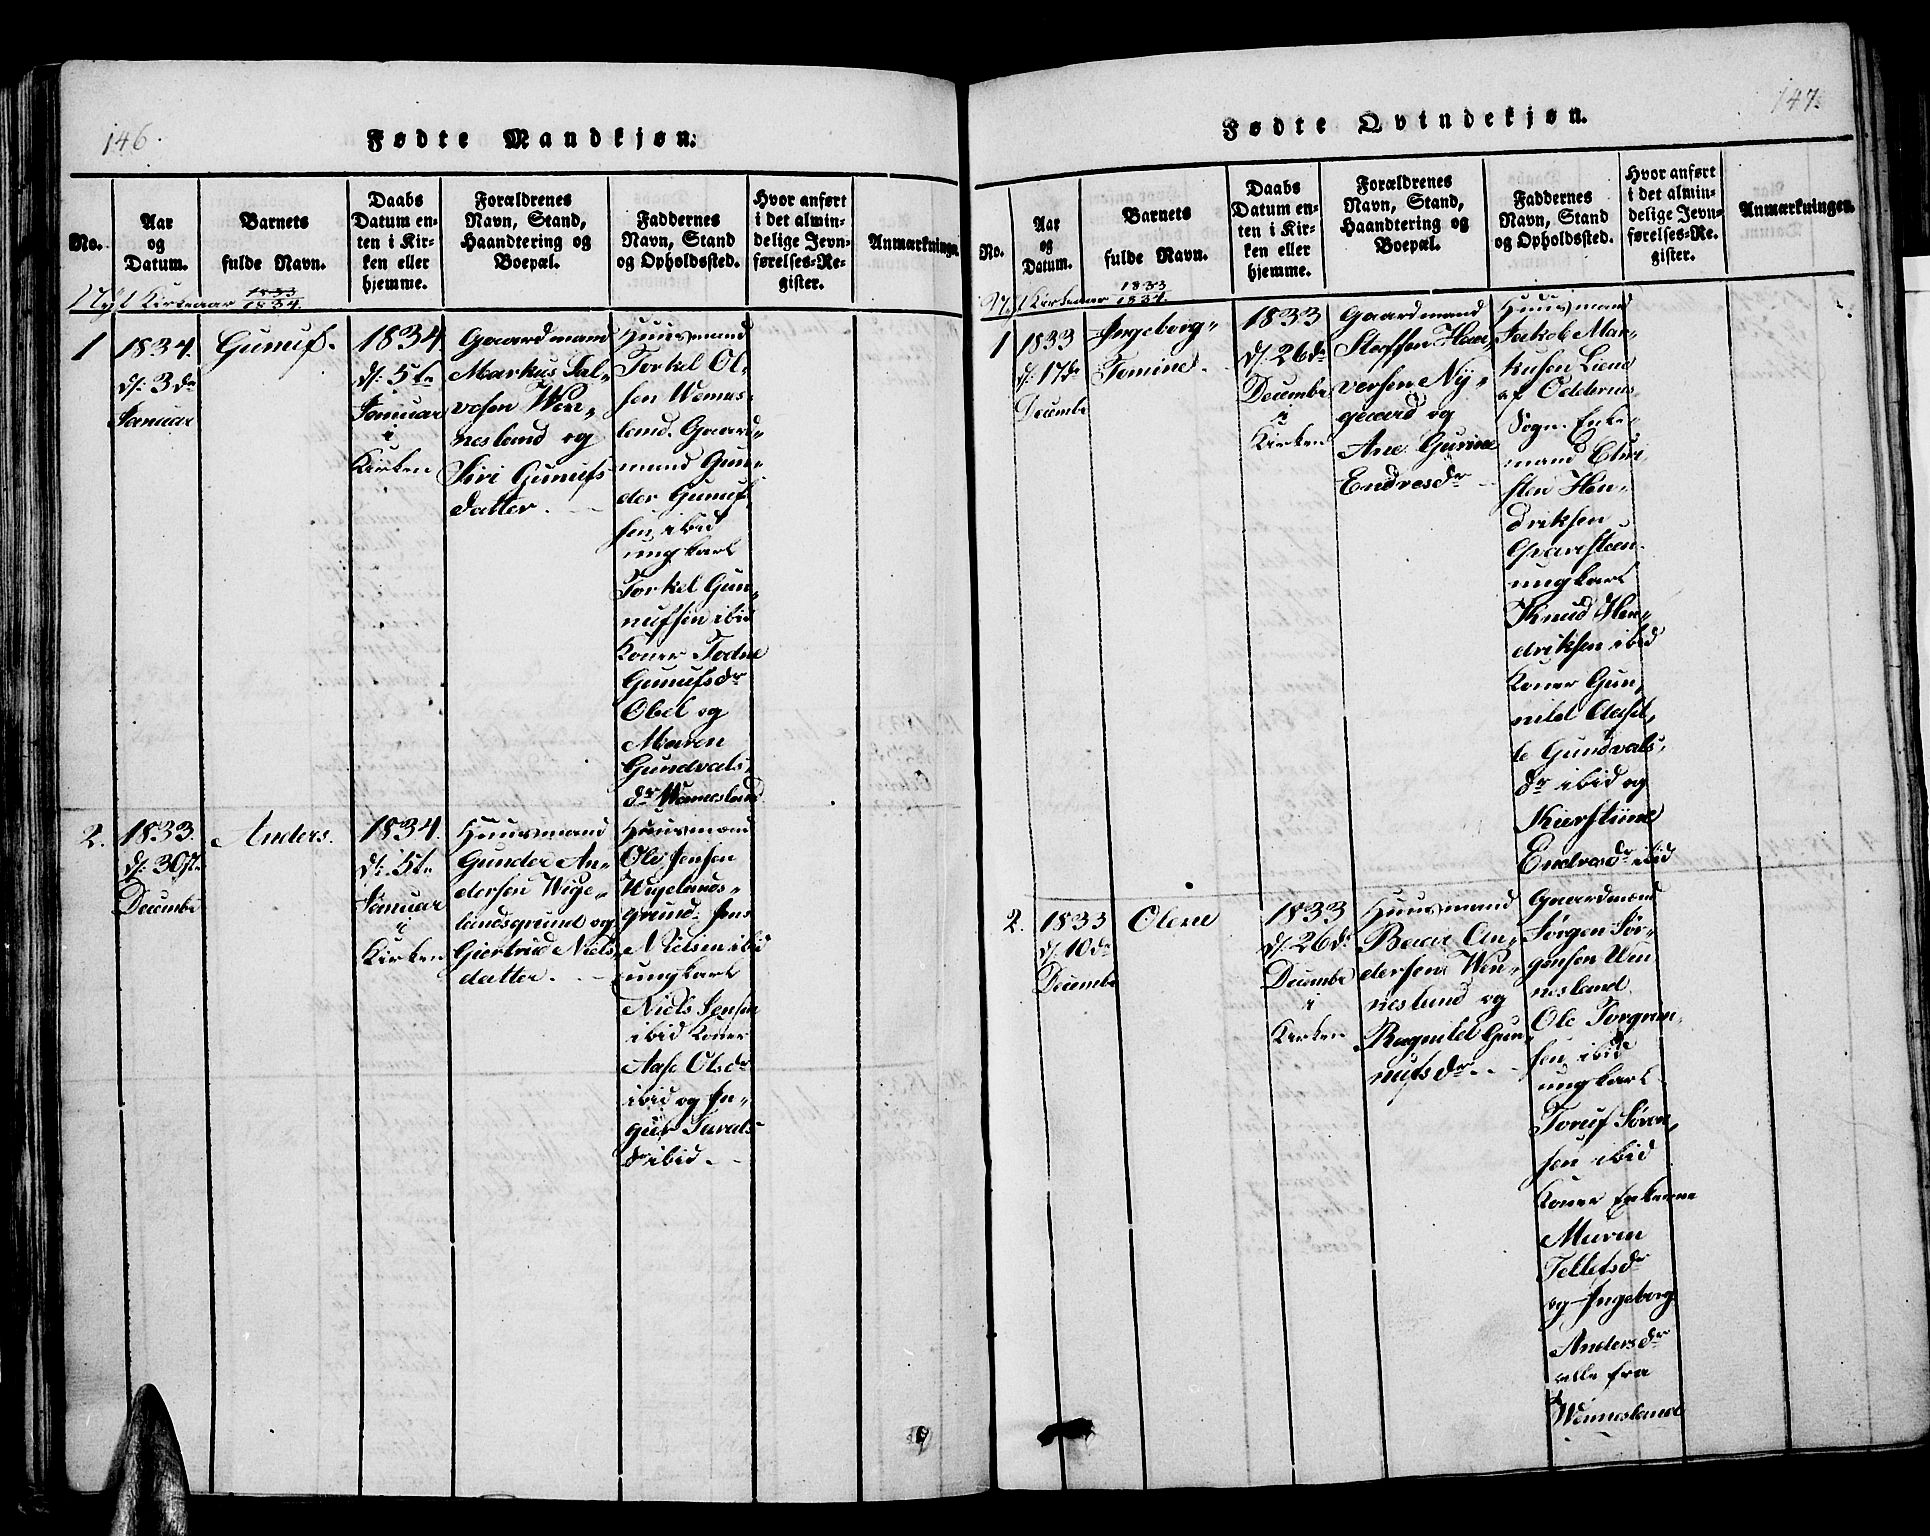 146.
Fødte Mandkjøn.
No.
Aar
og
Datum.
Barnets
fulde Navn.
Daabs
Datum en-
ten i Kir-
ken eller
hjemme.
Forældrenes
Navn, Stand,
Haandtering og
Boepæl.
Faddernes
Navn, Stand
og Opholdssted.
Hvor anført
i det almin-
delige Jevn-
førelses-Re-
gister.
Anmærkninge
Nyt Kirkeaar 1833
1834.
1
1834.
d: 3de
Januar
Gunuf.
1834
d: 5te
Januar
i
Kirken
Gaardmand
Markus Sal-
vesen Wen-
nesland og
Siri Gunufs
datter.
Huusmand
Torkel Ol-
sen Wennes-
land. Gaard-
mand Gun-
der Gunuf-
sen ibid
ungkarl
Torkel Gun-
nufsen ibid
Koner Todne
Gunufsdr
Obel og
Maren
Gundvals-
dr Wennesland
2.
1833.
d: 30te
Decembe
Anders.
1834.
d: 5te
Januar
i
Kirken
Huusmand
Gunder An-
dersen Wige-
landsgrund og
Giertrud Niels
datter.
Huusmand
Ole Jensen
Wigelands-
grund. Jens
Nielsen ibid
ungkarl
Niels Jensen
ibid Koner
Aase Olsdr
ibid og In-
ger Tarals
dr ibid.
147.
Fødte Qvindekjøn.
No.
Aar
og
Datum.
Barnets
fulde Navn.
Daabs
Datum en-
ten i Kir-
ken eller
hjemme.
Forældrenes
Navn, Stand,
Haandtering og
Boepæl.
Faddernes
Navn, Stand
og Opholdssted.
Hvor anført
i det almin-
delige Jevn-
førelses-Re-
gister.
Anmærkningen
Nyt Kirkeaar 1833
1834.
1
1833
d: 17de
Decembe
Ingeborg-
Tomine.
1833
d: 26de
Decembe
i
Kirken
Gaardmand
Steffen Haa-
versen Ny-
gaard og
Ane Gurine
Endresdr
Huusmand
Jakob Mar-
kusen Liene
af Oddernes
Sogn. Enke-
mand Chri-
sten Hen-
driksen
Gravesteen.
ungkarl
Knud Hen-
driksen ibid
Koner Gun-
nild
Gundvals-
dr ibid og
Kierstine
Endresdr ibid
2.
1833
d: 10de
Decembe
Olene
1833
d: 26de
Decembe
i
Kirken
Huusmand
An-
dersen Wen-
nesland og
Ragnild Gun
nufsdr.
Gaardmand
Jørgen Jør-
gensen Wen
nesland
Ole Torgrim-
sen ibid
ungkarl
Toruf Søren-
sen ibid
Koner Enkerne
Maren
Tellefsdr
og Ingeborg
Andersdr
alle fra
Wennesland